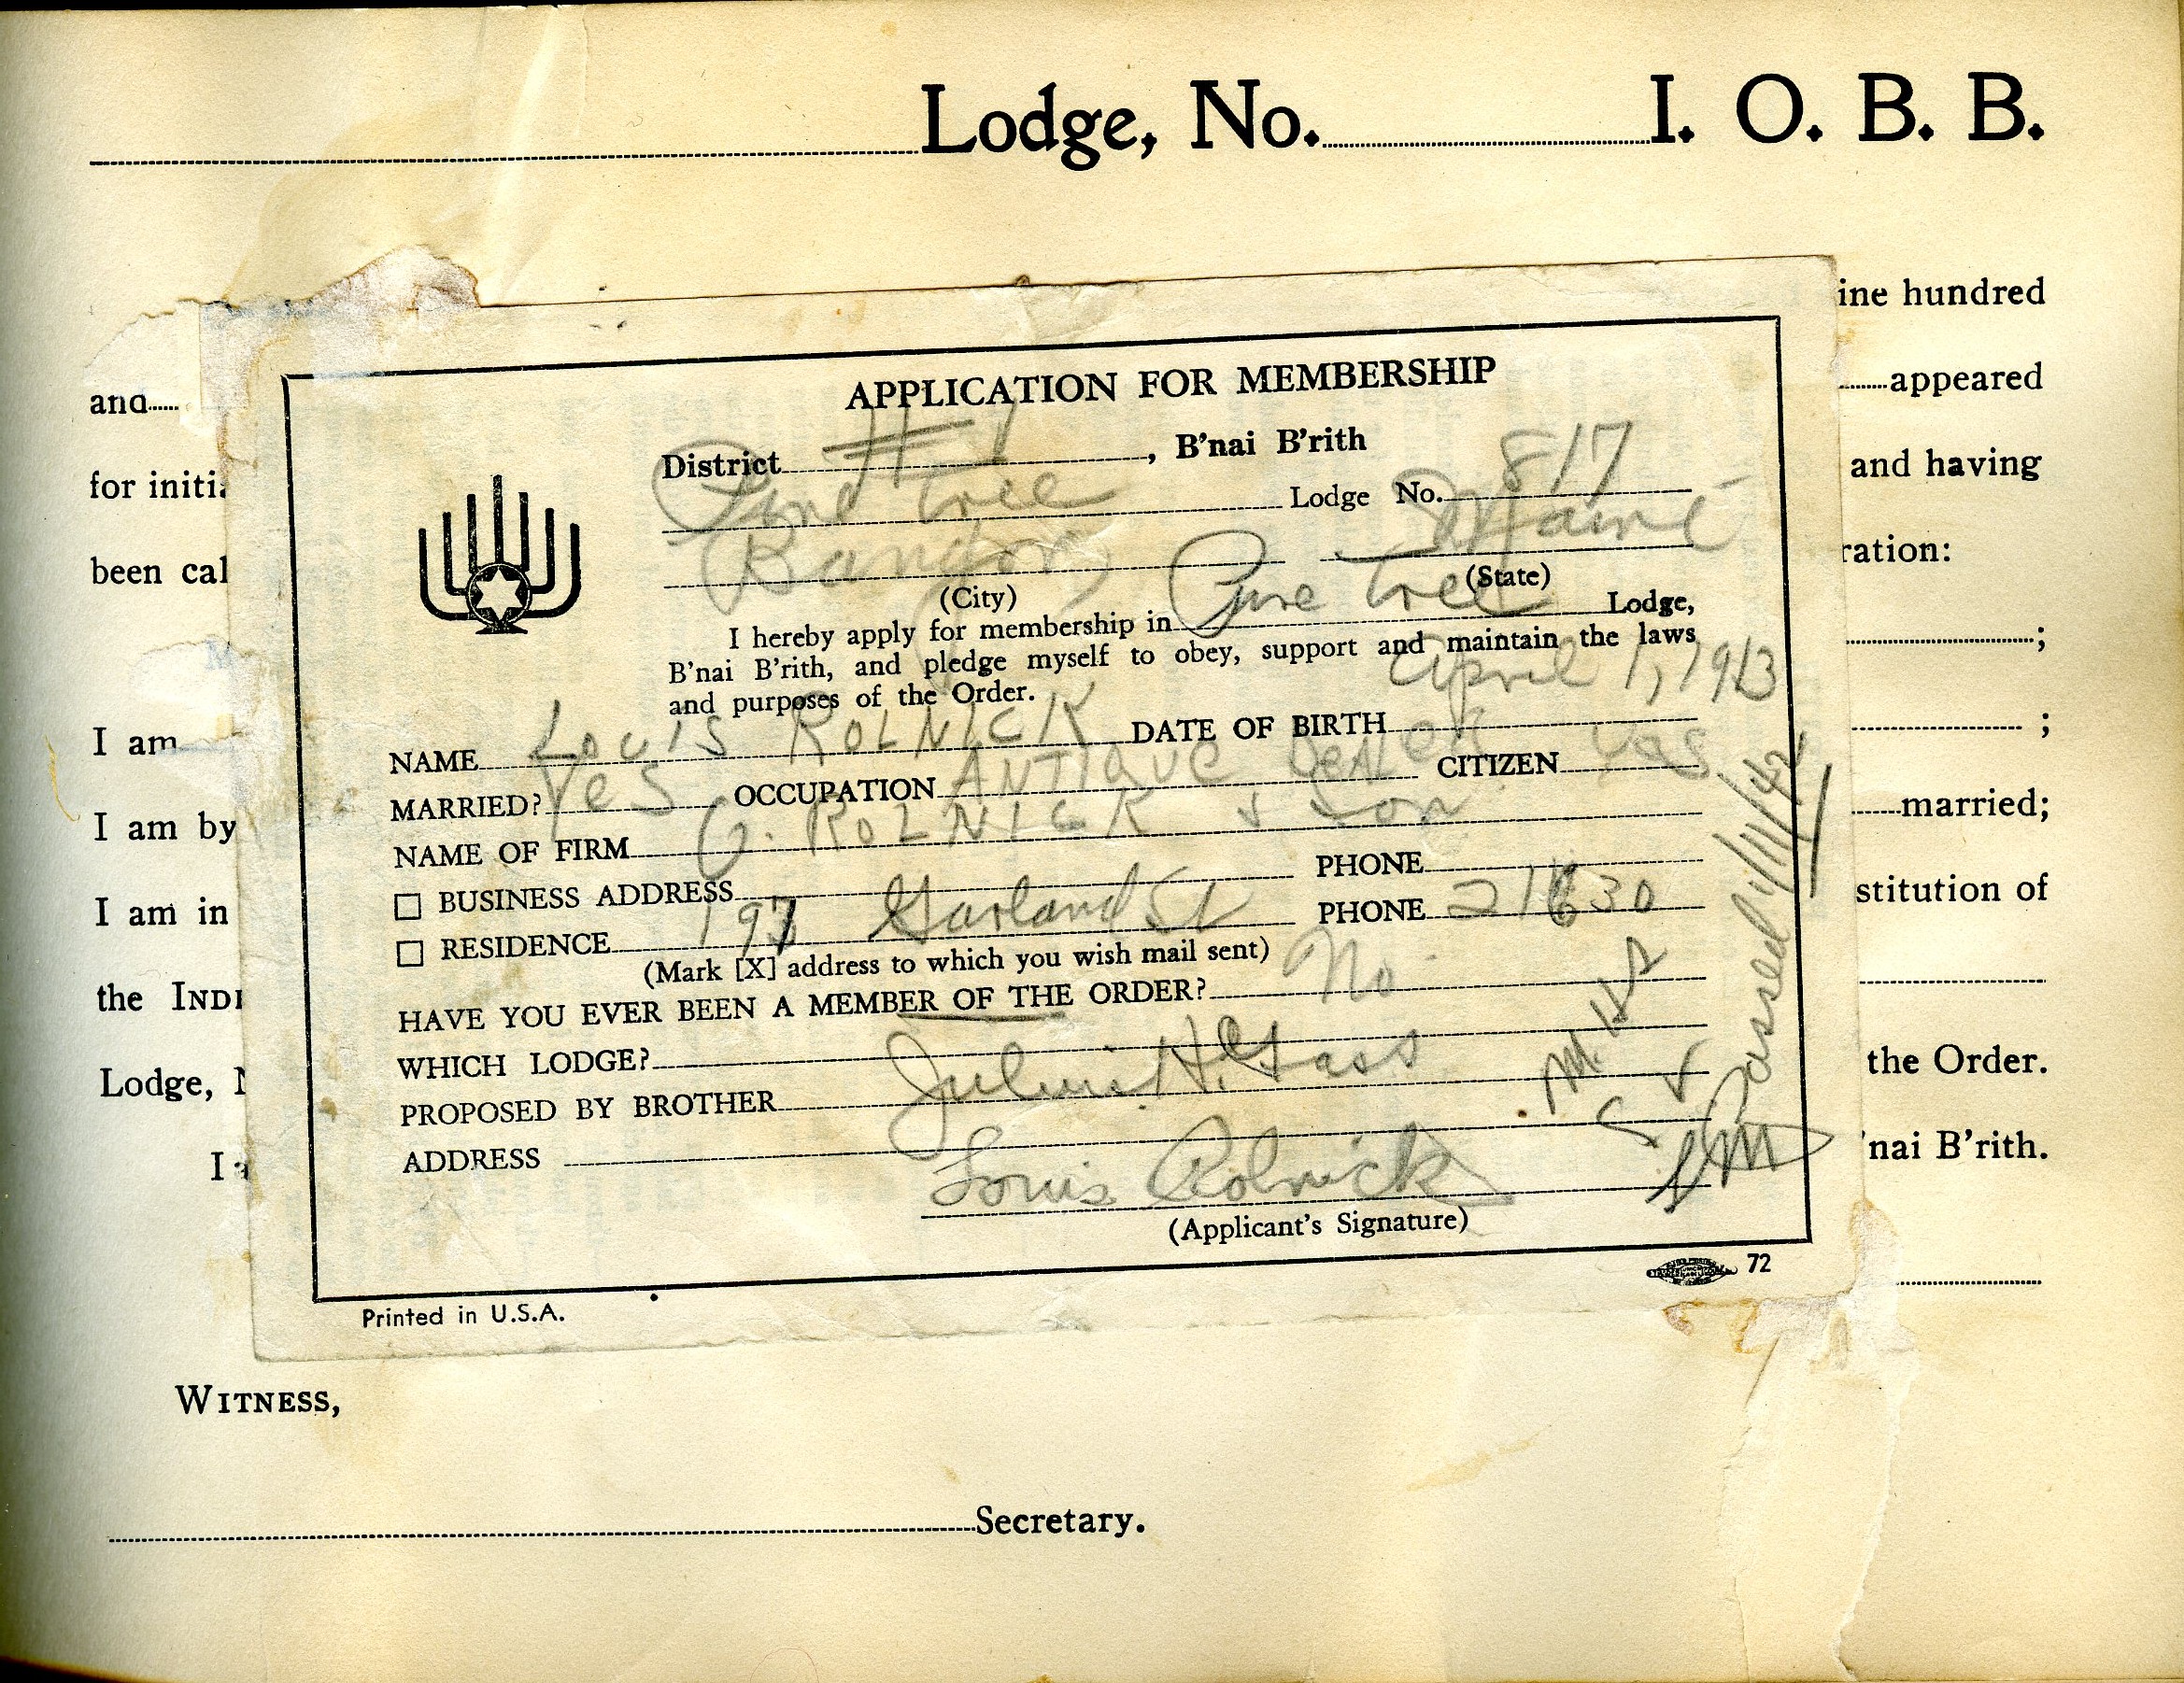 Lodge, No. I. O. B. B.
ine hundred
and appeared
for initi and having
been cal ration:
;
I am ;
I am by married;
I am in stitution of
the INDE
Lodge, N the Order.
I a 'nai B'rith.
WITNESS,
Secretary.
APPLICATION FOR MEMBERSHIP
District # 1, B'nai B'rith
Pine Tree Lodge No. 817
Bangor, Maine
(City) (State)
I hereby apply for membership in Pine Tree Lodge,
B'nai B'rith, and pledge myself to obey, support and maintain the laws
and purposes of the Order.
NAME LOUIS ROLNICK DATE OF BIRTH April 1, 1913
MARRIED? Yes OCCUPATION ANTIQUE DEALER CITIZEN Yes
NAME OF FIRM ROLNICK & Son
BUSINESS ADDRESS PHONE
RESIDENCE 197 Garland St PHONE 21630
(Mark [X] address to which you wish mail sent)
HAVE YOU EVER BEEN A MEMBER OF THE ORDER? No
WHICH LODGE?
PROPOSED BY BROTHER Julius H. Gass
ADDRESS
Louis Rolnick
(Applicant's Signature)
Passed
72
Printed in U.S.A.